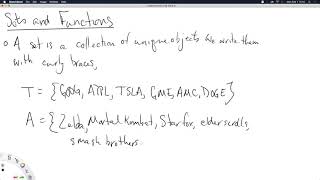 Sets and Functions
A set is a collection of unique objects we write them
with curly braces,
T = {GOOG, APPL, TSLA, GME, AMC, DOGE}
A = {Zelda, Mortal Kombat, Starfox, elder scrolls,
smash brothers